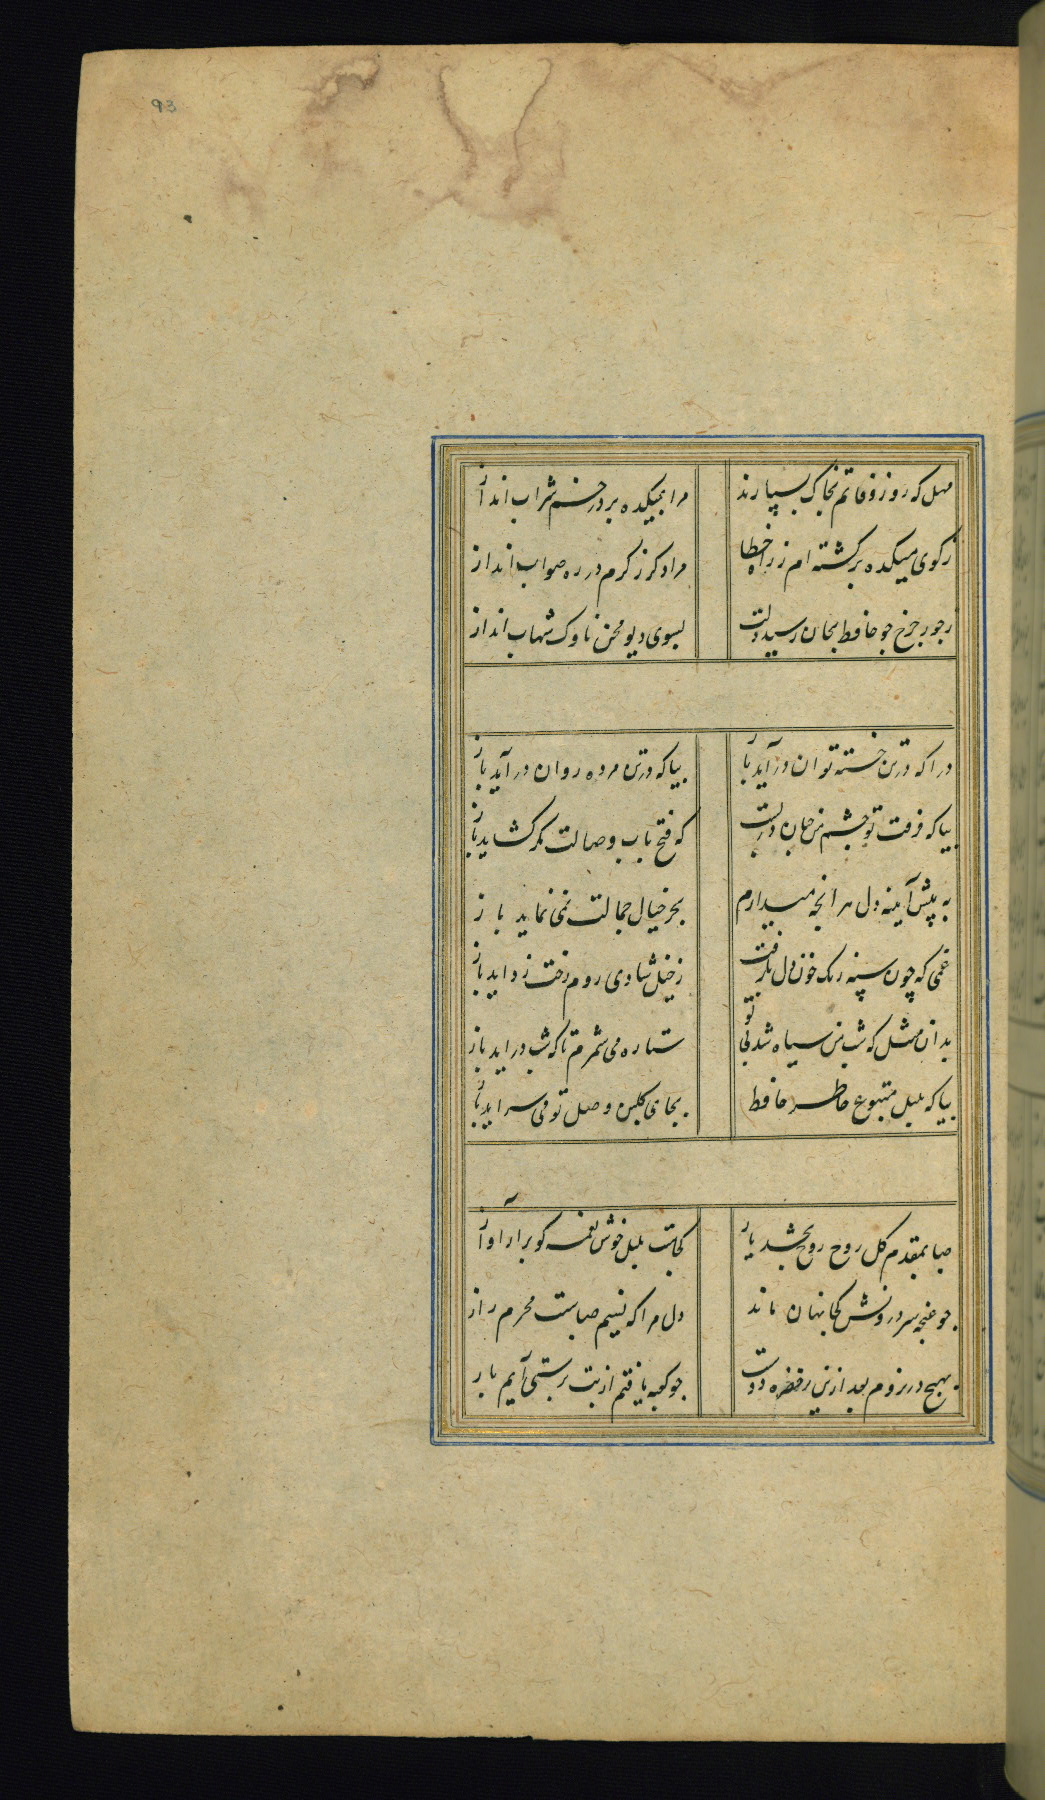 93
مهل که روز وفاتم بخاک بسپارند مرا بمیکده بر در خم شراب انداز
ز کوی میکده برکشته ام ز راه خطا مرا دکر ز کرم در ره صواب انداز
ز جور چرخ جو حافظ بجان رسید دلت بسوی دیو محن ناوک شهاب انداز
درا که در تن خسته توان درآید باز بیا که در تن مرده روان درآید باز
بیا که فرقت تو چشم من جنان در بست که فتح باب وصالت مکر کشاید باز
به پیش آینه دل هر انچه میدارم بجز خیال جمالت نمی نماید باز
غمی که چون سپه زنک خون دل بکرفت ز خیل شادی روم رخت زداید باز
بدان مثل که شب من سیاه شد بی تو ستاره می شمرم تا که شب دراید باز
بیا که بلبل متبوع خاطر حافظ بجای کلبن وصل تو می سراید باز
صبا بمقدم کل روح روح بخشد باز کجاست بلبل خوش نغمه کو برار آواز
جو غنچه سر درونش کجا نهان ماند دل مرا که نسیم صباست محرم راز
بهیچ در نروم بعد ازین ز حضره دوست جو کعبه یافتم از بت برستی آیم باز